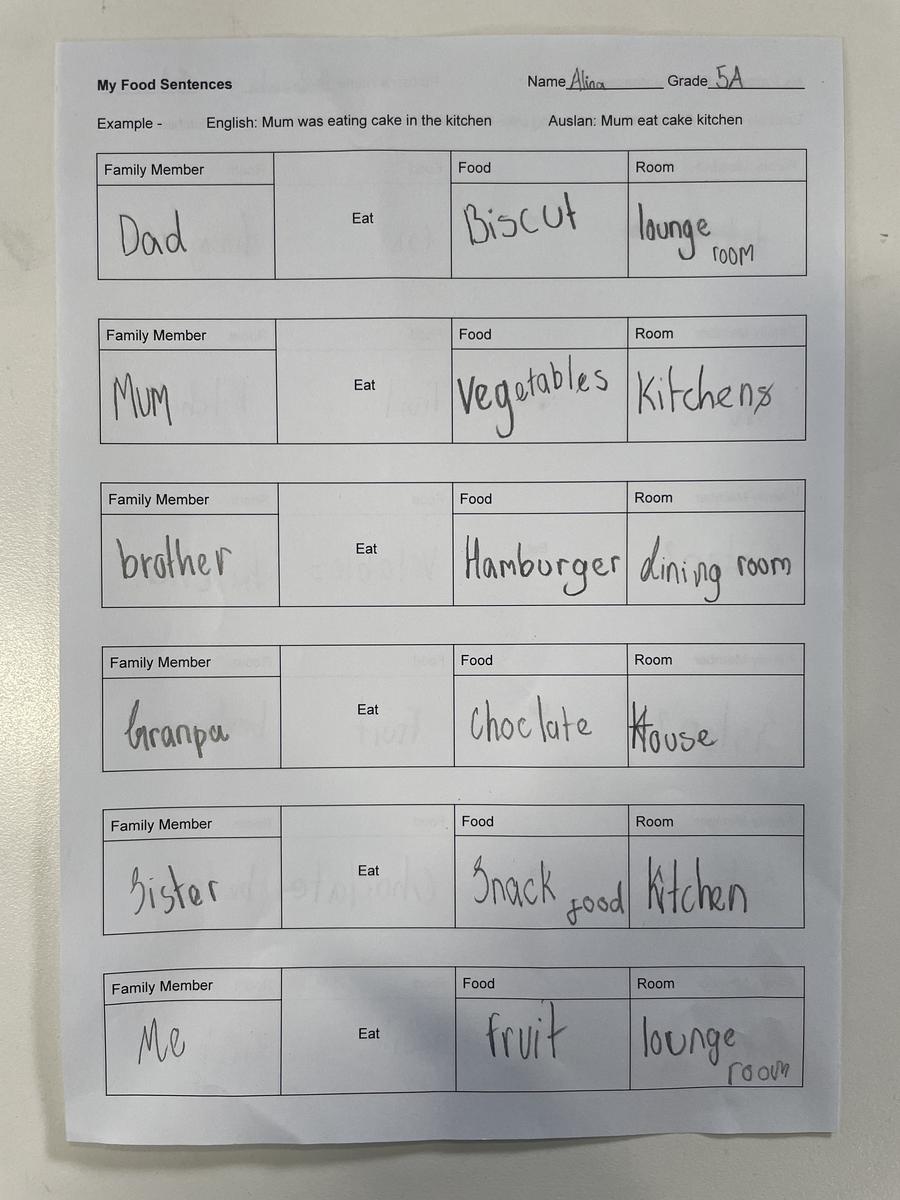 My Food Sentences Name Alina Grade 5A
Example - English: Mum was eating cake in the kitchen Auslan: Mum eat cake kitchen
Family Member Food Room
Dad Eat Biscut lounge
room
Family Member Food Room
Mum Eat Vegetables Kitchens
Family Member Food Room
brother Eat Hamburger dining room
Family Member Food Room
Granpa Eat Choclate House
Family Member Food Room
Sister Eat Snack food Kitchen
Family Member Food Room
Me Eat fruit lounge
room